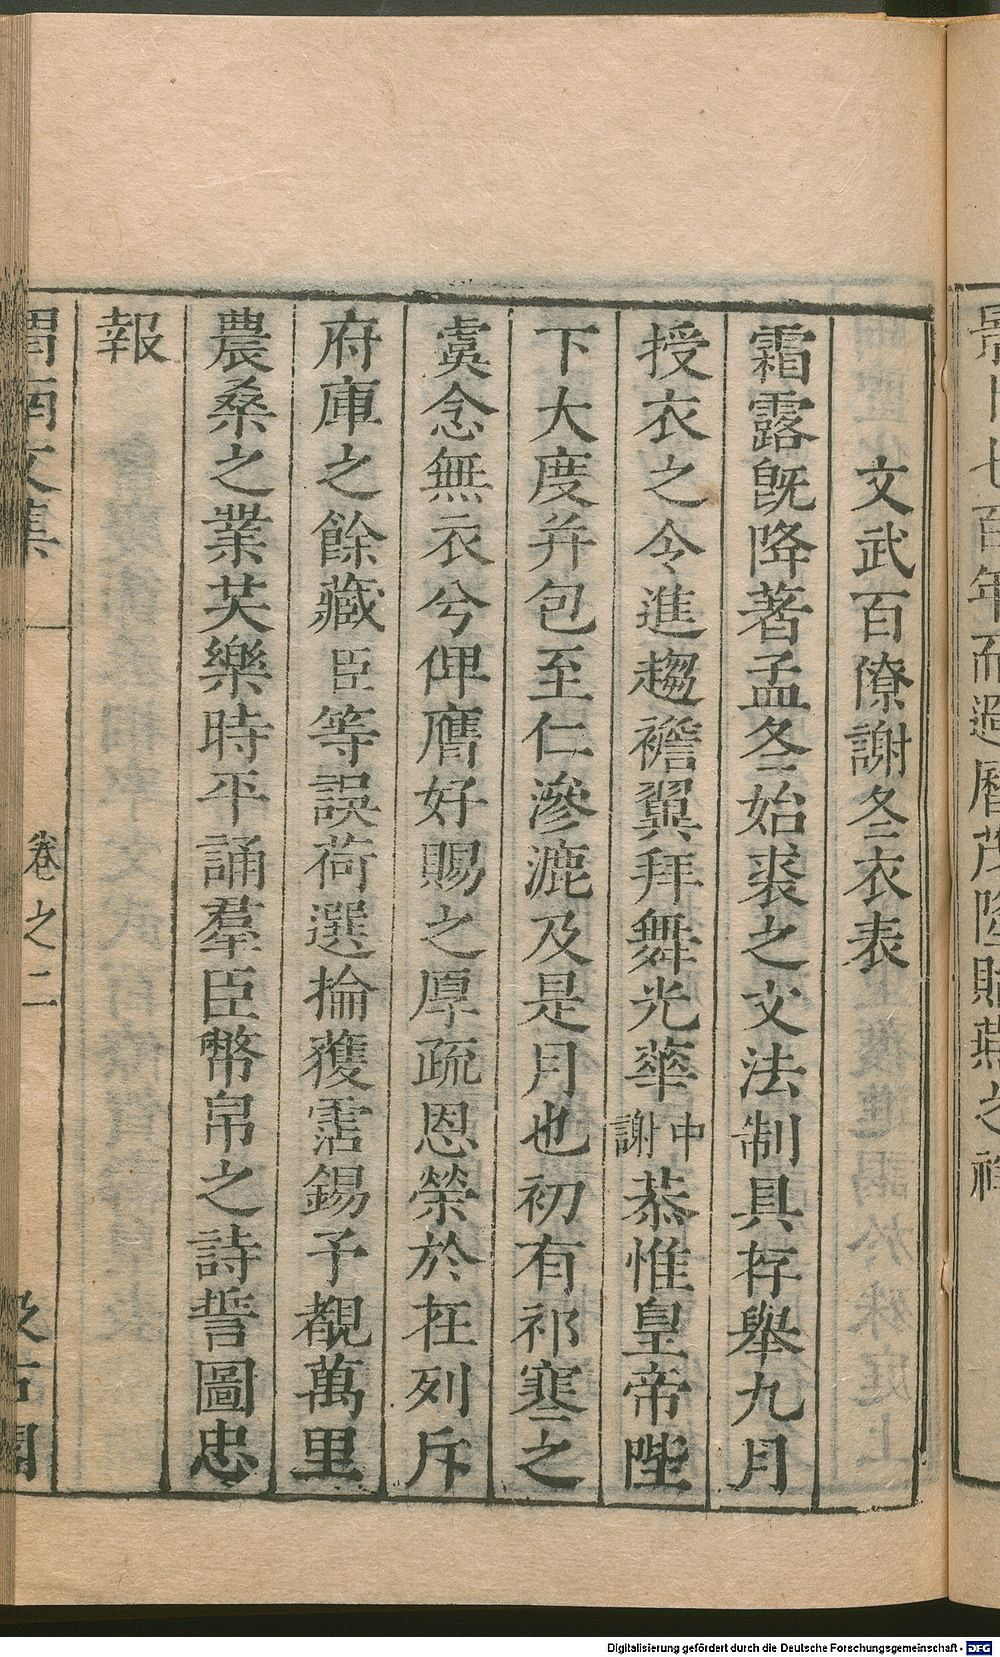 文武百僚謝冬衣表
霜露旣降著孟冬始裘之文法制具存舉九月
授衣之令進趨襜翼拜舞光華中謝恭惟皇帝陛
下大度并包至仁滲漉及是月也初有祁寒之
虞念無衣兮俾膺好賜之厚疏恩榮於在列斥
府庫之餘藏臣等誤荷選掄獲霑錫予覩萬里
農桑之業芺樂時平誦羣臣幣帛之詩誓圖忠
報
渭南文集 卷之二 汲古閣
Digitalisierung gefördert durch die Deutsche Forschungsgemeinschaft - DFG